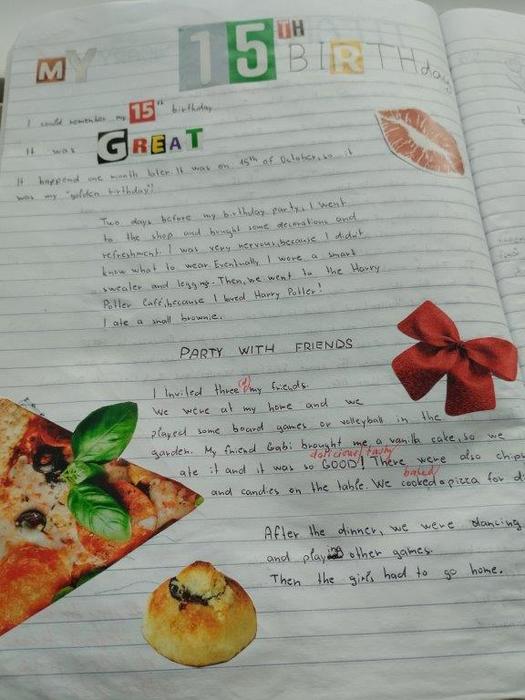 MY 15TH BIRTHday
I could remember my 15th birthday
It was GREAT
It happend one month later. It was on 15th of October, so it
was my "golden birthday"!
Two days before my birthday party, I went
to the shop and bought some decorations and
refreshment. I was very nervous, because I didn't
know what to wear. Eventually, I wore a smart
sweater and legging. Then, we went to the Harry
Potter Café, because I loved Harry Potter!
I ate a small brownie.
PARTY WITH FRIENDS
I invited three of my friends.
We were at my home and we
played some board games or volleyball in the
garden. My friend Gabi brought me a vanilla cake, so we
delicious/tasty
ate it and it was so GOOD! There were also chips
baked
and candies on the table. We cooked a pizza for di
After the dinner, we were dancing
and playing other games.
Then the girls had to go home.